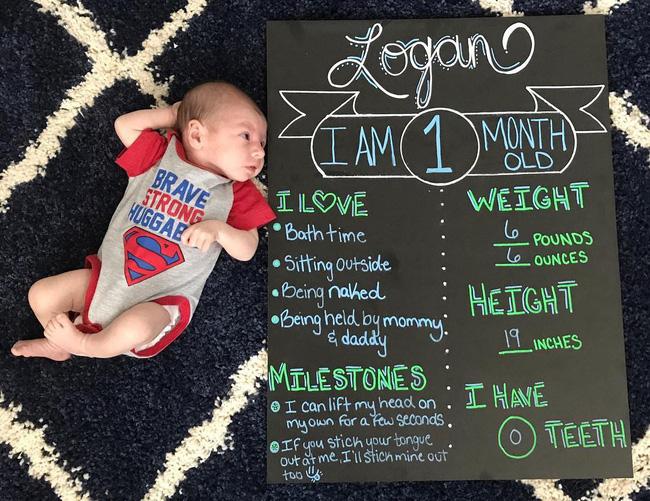 Logan
I AM 1 MONTH OLD
BRAVE
STRONG
HUGGAB
S
I LOVE
Bath time
Sitting outside
Being naked
Being held by mommy
& daddy
MILESTONES
I can lift my head on
my own for a few seconds
If you stick your tongue
out at me, I'll stick mine out
too
WEIGHT
6 POUNDS
6 OUNCES
HEIGHT
19 INCHES
I HAVE
0 TEETH